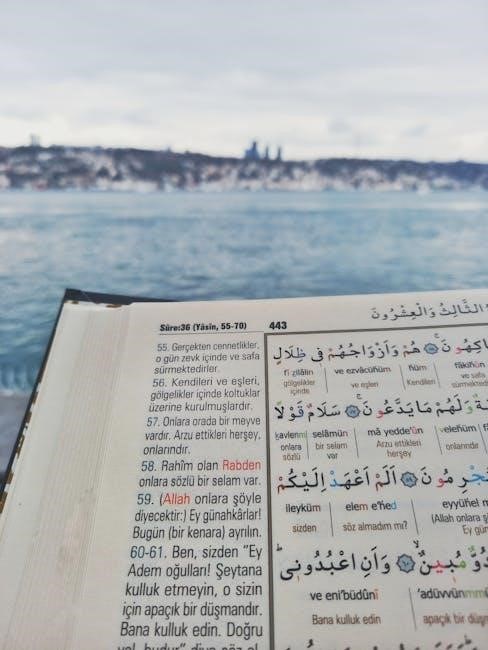 Sûre:36 (Yâsîn, 55-70)
443
الثَّالِثُ وَالْعِشْرُونَ
55. Gerçekten cennetlikler,
o gün zevk içinde ve safa
sürmektedirler.
56. Kendileri ve eşleri,
gölgelikler içinde koltuklar
üzerine kurulmuşlardır.
57. Onlara orada bir meyve
vardır. Arzu ettikleri herşey,
onlarındır.
58. Rahîm olan Rabden
onlara sözlü bir selam var.
59. (Allah onlara şöyle
diyecektir:) Ey günahkârlar!
Bugün (bir kenara) ayrılın.
60-61. Ben, sizden "Ey
Adem oğulları! Şeytana
kulluk etmeyin, o sizin
için apaçık bir düşmandır.
Bana kulluk edin. Doğru
هُمْ وَاَزْوَاجُهُمْ فِي ظِلَالٍ
fî zılâlin ve ezvâcühüm hüm fâkihûn
gölgelikler ve eşleri Kendileri ve safa
içinde sürmektedir
وَلَهُمْ مَا يَدَّعُونَ سَلَامٌ قَوْلًا
kavlenm selâmün mâ yedde'ûn velehüm
onlara bir selam Arzu ettikleri onlarındır
sözlü var herşey
اَلَمْ اَعْهَدْ اِلَيْكُمْ
ileyküm elem e'hed eyyühel
sizden söz almadım mı? (Allah onlara
Ey
مُبِينٌ وَاَنِ اعْبُدُونِي
ve eni'büdûnî 'adüvvün
Bana kulluk edin apaçık bir